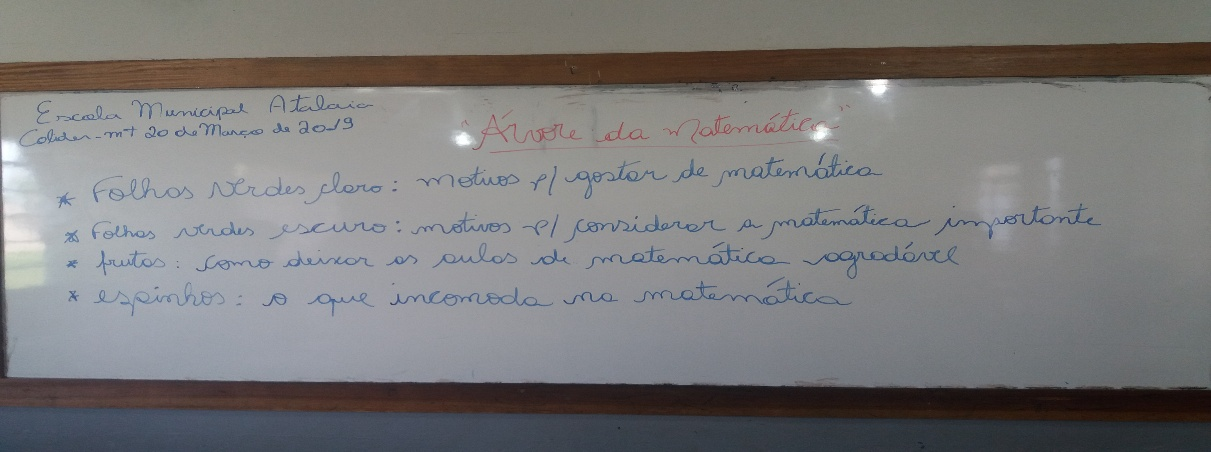 Escola Municipal Atalaia
Colider-mt 20 de Março de 2019
"Árvore da Matemática"
* Folhas verdes claro: motivos p/ gostar de matemática
* Folhas verdes escuro: motivos p/ considerar a matemática importante
* frutos: como deixar as aulas de matemática agradável
* espinhos: o que incomoda na matemática